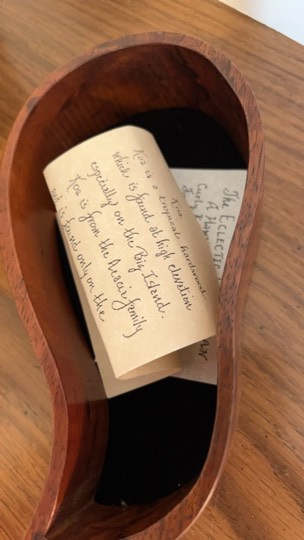 Koa
Koa is a tropical hardwood
which is found at high elevation
especially on the Big Island.
Koa is from the Acacia family
and is found only on the
The ECLECTIC
A Haw
Curly K